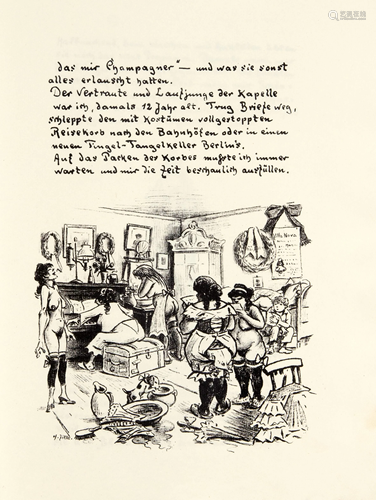 das mir Champagner" – und was sie sonst
alles erlauscht hatten.
Der Vertraute und Laufjunge der Kapelle
war ich, damals 12 Jahr alt. Trug Briefe weg,
schleppte den mit Kostümen vollgestoppten
Reisekorb nach den Bahnhöfen oder in einen
neuen Tingel-Tangelkeller Berlin's.
Auf das Packen des Korbes mußte ich immer
warten und mir die Zeit beschaulich ausfüllen.